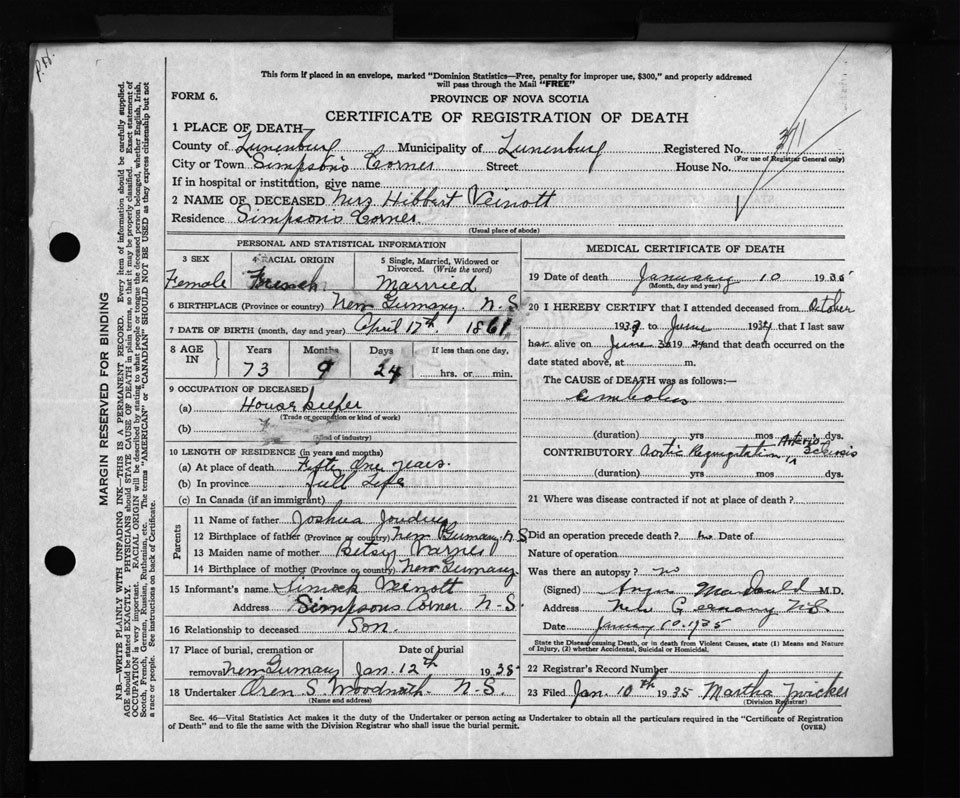 P.H.
This form if placed in an envelope, marked "Dominion Statistics—Free, penalty for improper use, $300," and properly addressed
will pass through the Mail "FREE"
FORM 6.
PROVINCE OF NOVA SCOTIA
CERTIFICATE OF REGISTRATION OF DEATH
1 PLACE OF DEATH—
County of Lunenburg Municipality of Lunenburg Registered No.
(For use of Registrar General only)
City or Town Simpson's Corner Street House No.
If in hospital or institution, give name
2 NAME OF DECEASED Mrs Hibbert Veinott
Residence Simpson's Corner.
(Usual place of abode)
PERSONAL AND STATISTICAL INFORMATION
3 SEX 4 RACIAL ORIGIN 5 Single, Married, Widowed or Divorced. (Write the word)
Female French Marrried
6 BIRTHPLACE (Province or country) New Gumany. N.S.
7 DATE OF BIRTH (month, day and year) April 17th. 1861
8 AGE IN Years Months Days If less than one day,
73 9 24 hrs. or min.
9 OCCUPATION OF DECEASED
(a) House keeper
(Trade or occupation or kind of work)
(b)
(Kind of industry)
10 LENGTH OF RESIDENCE (in years and months)
(a) At place of death Fifty One years.
(b) In province full Life
(c) In Canada (if an immigrant)
Parents
11 Name of father Joshua
12 Birthplace of father (Province or country) New Gumany N.S.
13 Maiden name of mother Betsy Varnes
14 Birthplace of mother (Province or country) New Gumany
15 Informant's name Veinott
Address Simpsons Corner. N-S.
16 Relationship to deceased Son.
17 Place of burial, cremation or removal New Gumany Date of burial Jan. 12th 1935
18 Undertaker Oren S. N-S.
(Name and address)
MEDICAL CERTIFICATE OF DEATH
19 Date of death January 10 1935
(Month, day and year)
20 I HEREBY CERTIFY that I attended deceased from October
1933 to June 1934 that I last saw
her alive on June 30 1934 and that death occurred on the
date stated above, at m.
The CAUSE of DEATH was as follows:—
embolus
(duration) yrs mos dys.
CONTRIBUTORY Aortic Regurgitation, Arterio Sclerosis
(duration) yrs mos dys.
21 Where was disease contracted if not at place of death?
Did an operation precede death? no Date of
Nature of operation
Was there an autopsy? no
(Signed) Angus MacDonald M.D.
Address New Germany N.S.
Date January 10. 1935
State the Disease causing Death, or in death from Violent Causes, state (1) Means and Nature
of Injury, (2) whether Accidental, Suicidal or Homicidal.
22 Registrar's Record Number
23 Filed Jan. 10th 1935 Martha Zwicker
(Division Registrar)
Sec. 46—Vital Statistics Act makes it the duty of the Undertaker or person acting as Undertaker to obtain all the particulars required in the "Certificate of Registration
of Death" and to file the same with the Division Registrar who shall issue the burial permit.
(OVER)
MARGIN RESERVED FOR BINDING
N.B.—WRITE PLAINLY WITH UNFADING INK—THIS IS A PERMANENT RECORD. Every item of information should be carefully supplied.
AGE should be stated EXACTLY. PHYSICIANS should STATE CAUSE OF DEATH in plain terms, so that it may be properly classified. Exact statement of
OCCUPATION is very important. RACIAL ORIGIN will be described by stating to what people or tongue the deceased person belonged, whether English, Irish,
Scotch, French, German, Russian, Ruthenian, etc. The terms "AMERICAN" or "CANADIAN" SHOULD NOT BE USED as they express citizenship but not
a race or people. See instructions on back of Certificate.